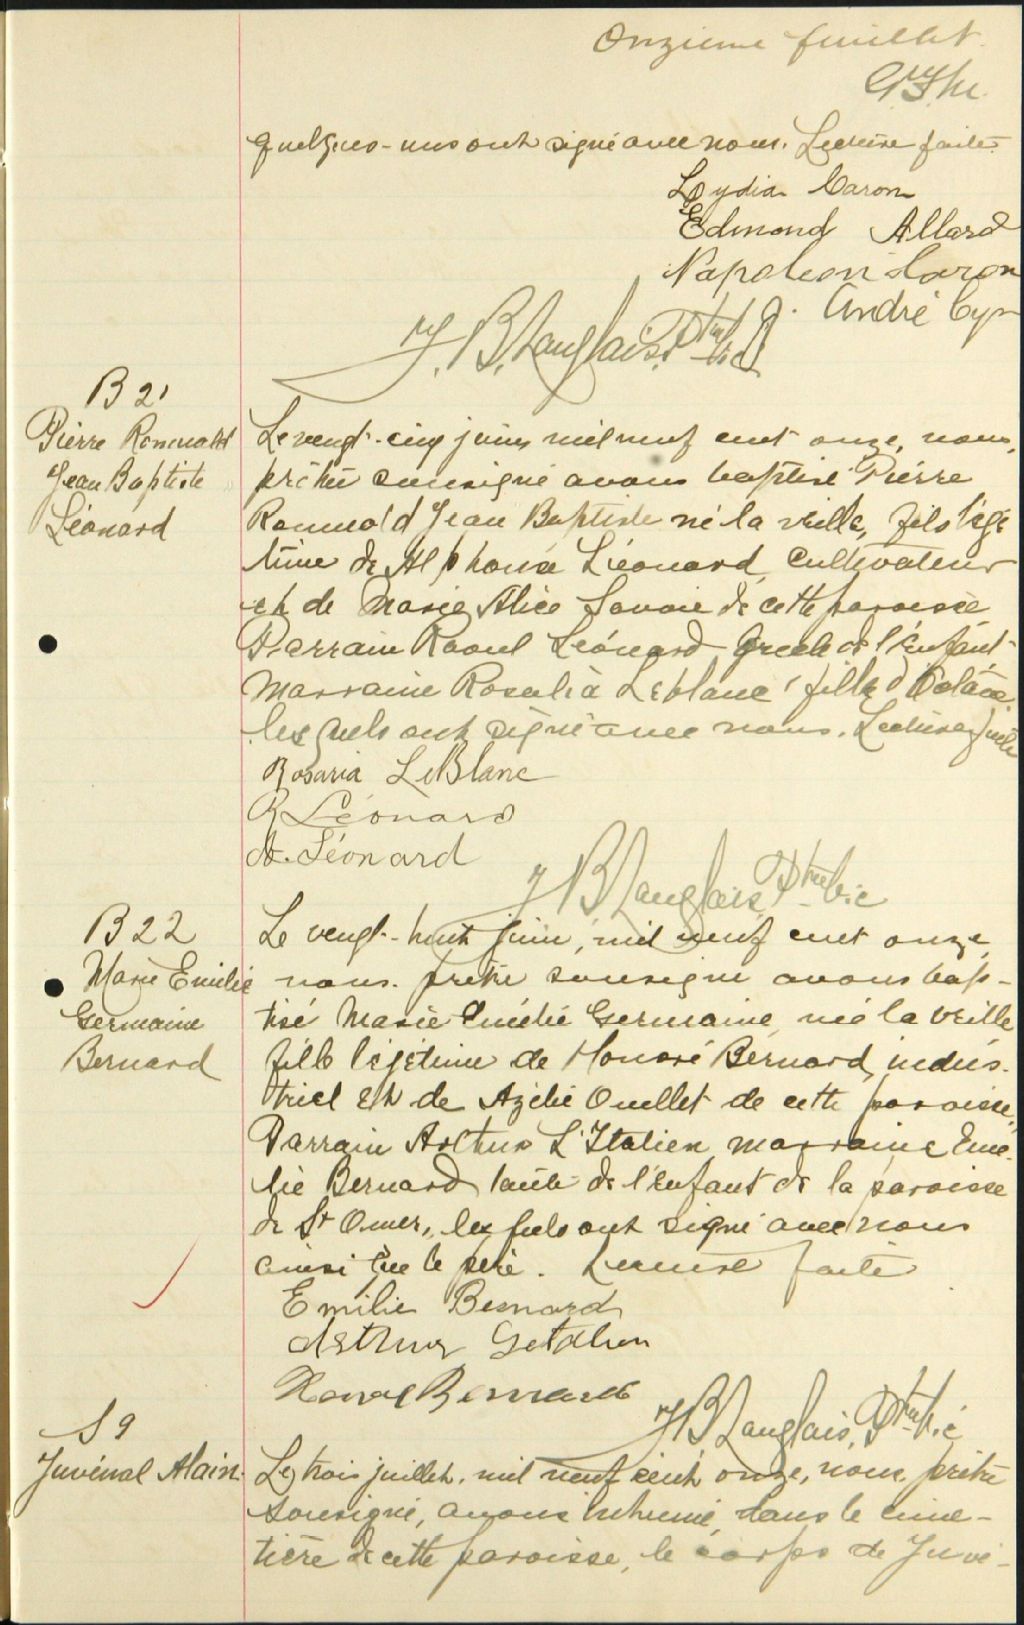 Onzieme feuillet
quelques-uns ont signé avec nous. Lecture faite.
Lydia Caron
Edmond Allard
Napoleon Caron
J. André Cyr
J. B. Langlais, Ptre Vic
B 21
Pierre Romuald
Jean Baptiste
Léonard
Le vengt-cinq juin, mil neuf cent onze, nous,
prêtre sousigné avons baptisé Pierre
Romuald Jean Baptiste né la veille, fils légi
time de Alphonse Léonard, cultivateur
et de Marie Alice Savoie de cette paroisse
Parrain Raoul Léonard, oncle de l'enfant
Marraine Rosalia Leblanc, fille d'Octave
lesquels ont signé avec nous. Lecture faite
Rosaria LeBlanc
R Léonard
A. Léonard
J B Langlais, Ptre Vic
B 22
Marie Emilie
Germaine
Bernard
Le vengt-huit juin, mil neuf cent onze,
nous prêtre sousigné avons bap-
tisé Marie Emélie Germaine, née la veille
fille légitime de Honoré Bernard, indus-
triel et de Azélie Ouellet de cette paroisse,
Parrain Arthur L'Italien marraine Eme-
lie Bernard tante de l'enfant de la paroisse
de St Omer, lesquels ont signé avec nous
ainsi que le père. Lecture faite
Emilie Bernard
Arthur Getalien
Honoré Bernard
J B Langlais, Ptre Vic
S 9
Juvénal Alain.
Le trois juillet, mil neuf cent onze, nous, prêtre
sousigné, avons inhumé, dans le cime-
tière de cette paroisse, le corps de Juvé-